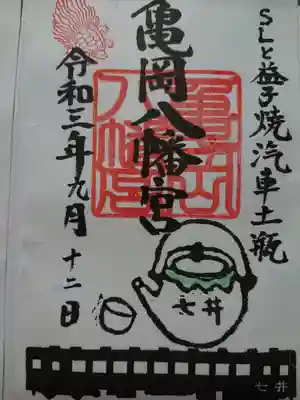 SLと益子焼汽車土瓶
亀岡八幡宮
亀岡八幡宮
令和三年九月十二日
七井
七井